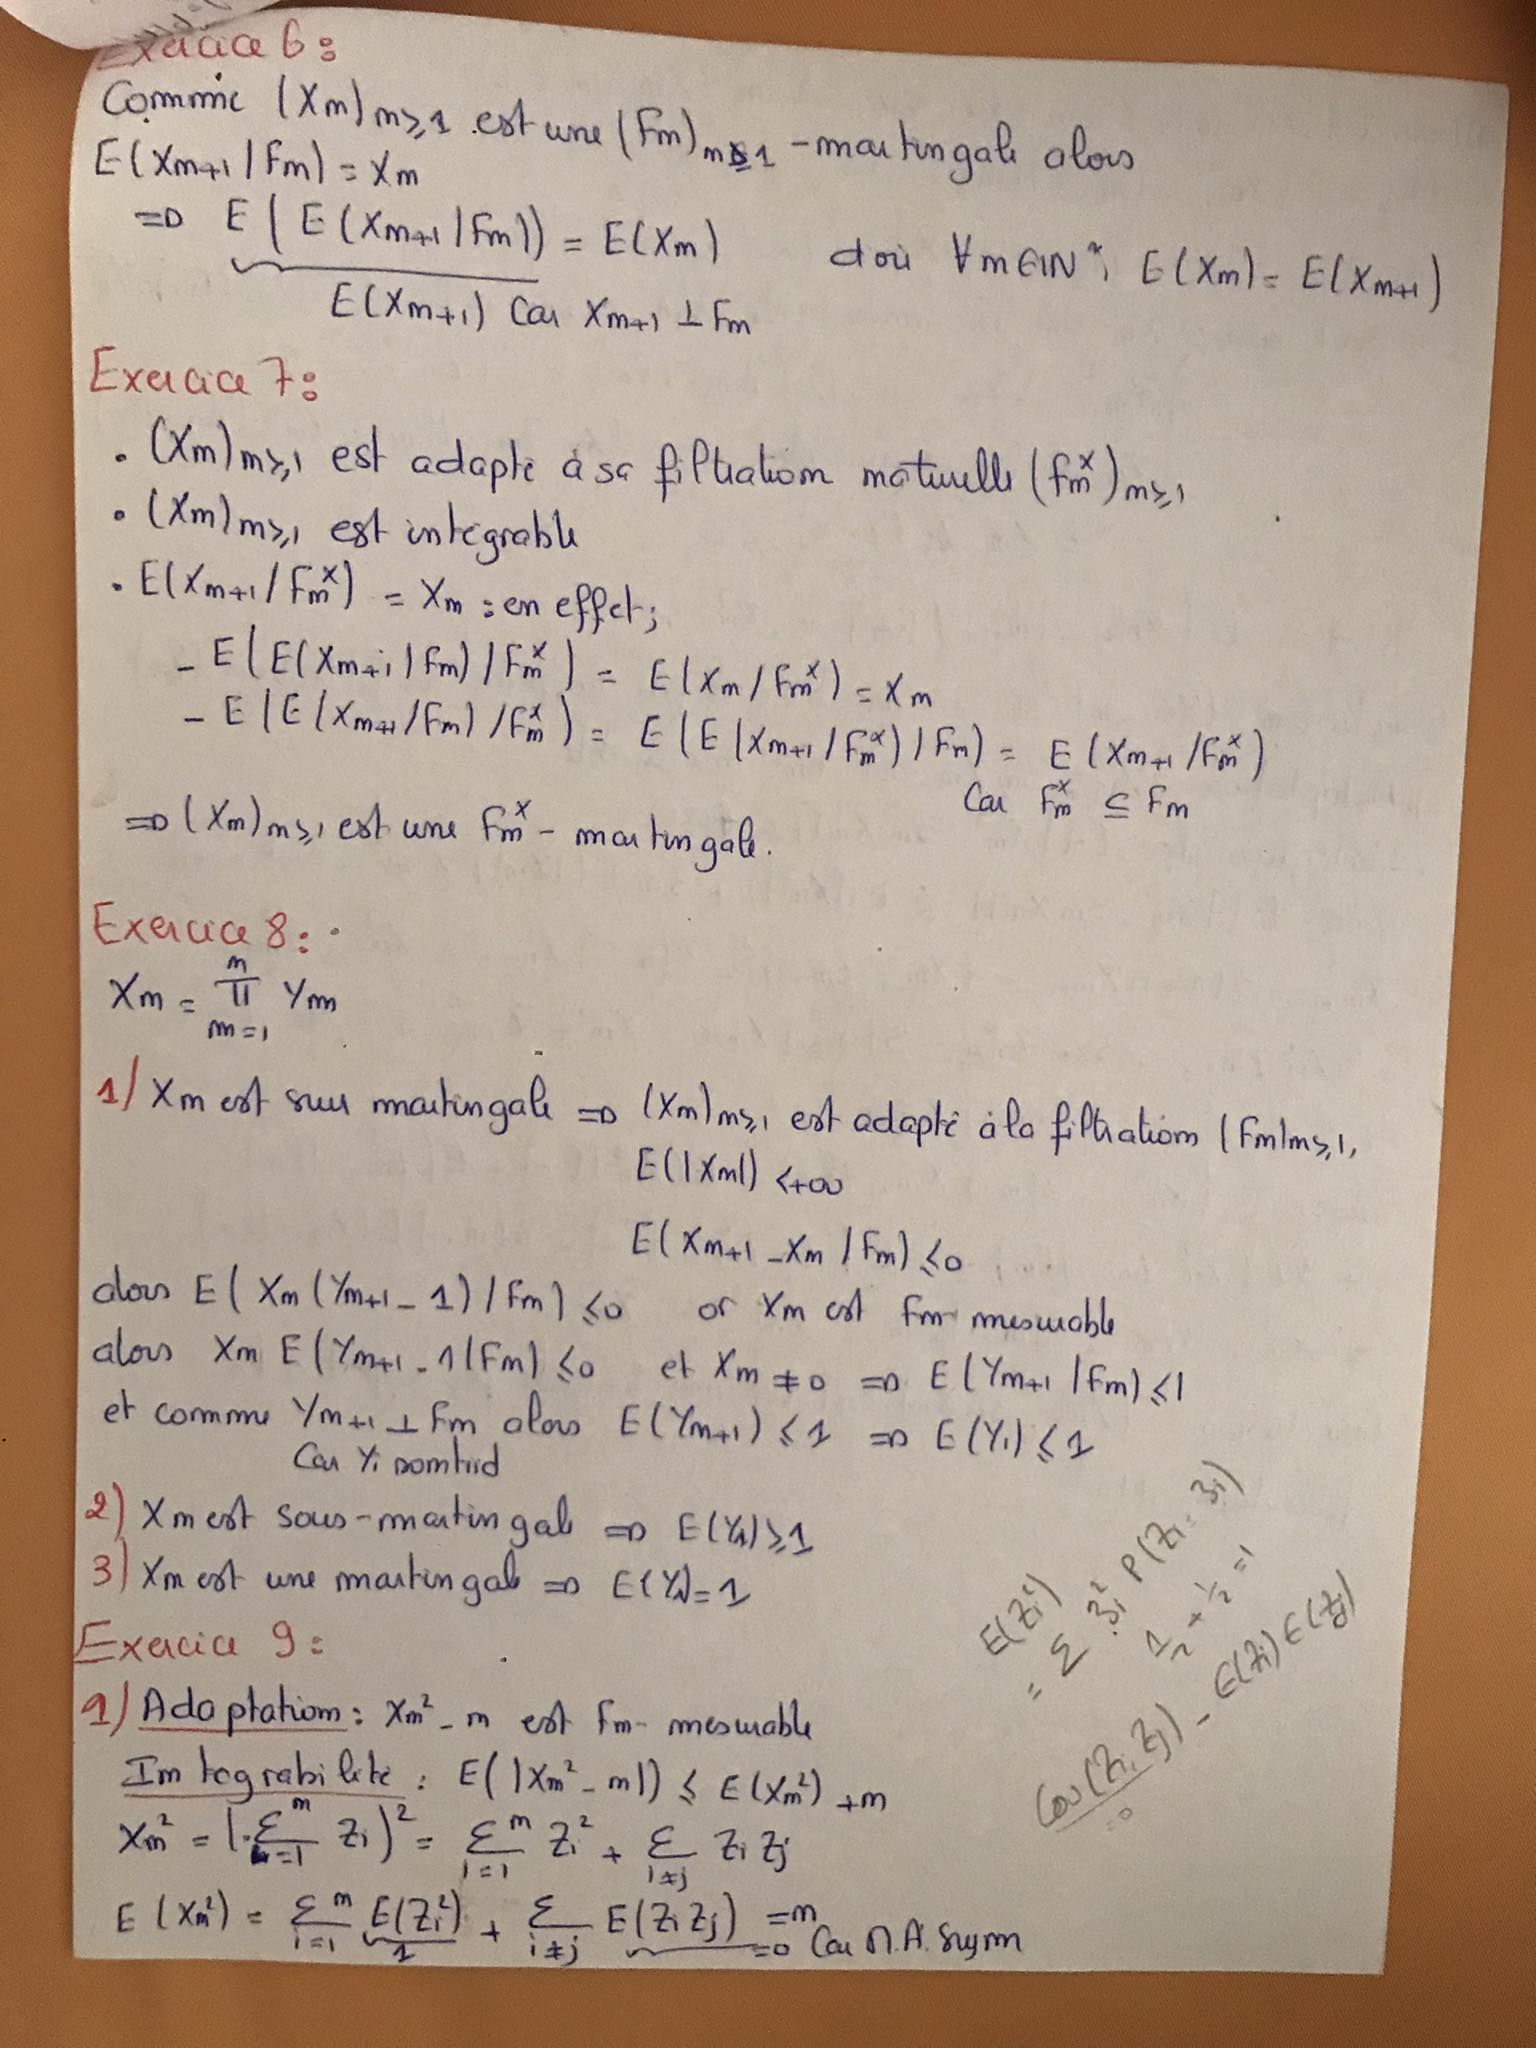 Exercice 6:
Comme (Xn)n≥1 est une (Fn)n≥1 - martingale alors
E(Xn+1 / Fn) = Xn
=> E(E(Xn+1 / Fn)) = E(Xn) doù ∀n∈IN*, E(Xn) = E(Xn+1)
E(Xn+1) Car Xn+1 ⊥ Fn
Exercice 7:
. (Xn)n≥1 est adapté à sa filtration naturelle (Fn^X)n≥1
. (Xn)n≥1 est intégrable
. E(Xn+1 / Fn^X) = Xn : en effet;
- E(E(Xn+1 / Fn) / Fn^X) = E(Xn / Fn^X) = Xn
- E(E(Xn+1 / Fn) / Fn^X) = E(E(Xn+1 / Fn^X) / Fn) = E(Xn+1 / Fn^X)
Car Fn^X ⊆ Fn
=> (Xn)n≥1 est une Fn^X - martingale.
Exercice 8:
n
Xn = Π Ym
m=1
1/ Xn est sur martingale => (Xn)n≥1 est adapté à la filtration (Fn)n≥1,
E(|Xn|) < +∞
E(Xn+1 - Xn / Fn) ≤ 0
alors E(Xn(Yn+1 - 1) / Fn) ≤ 0 or Xn est Fn mesurable
alors Xn E(Yn+1 - 1 / Fn) ≤ 0 et Xn ≠ 0 => E(Yn+1 / Fn) ≤ 1
et comme Yn+1 ⊥ Fn alors E(Yn+1) ≤ 1 => E(Y1) ≤ 1
Car Yi sont iid
2) Xn est sous-martingale => E(Y1) ≥ 1
3) Xn est une martingale => E(Y1) = 1
Exercice 9:
1/ Adaptation: Xn² - n est Fn - mesurable
Intégrabilité: E(|Xn² - n|) ≤ E(Xn²) + n
Xn² = (Σ^n i=1 Zi)² = Σ^n i=1 Zi² + Σ i≠j Zi Zj
E(Xn²) = Σ^n i=1 E(Zi²) + Σ i≠j E(Zi Zj) = n
1
=0 Car M.A. Sym
E(Zi²)
= Σ zi² P(Zi = zi)
1/2 + 1/2 = 1
Cov(Zi, Zj) - E(Zi) E(Zj)
=0